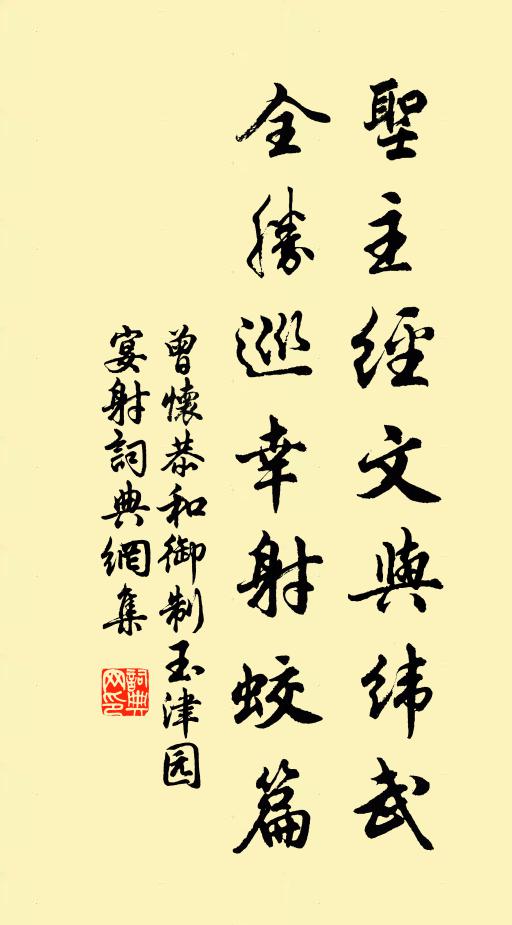 聖主經文與緯武
全勝巡幸射蛟篇
曾懷恭和御制玉津园
宴射詞典網集
詞典网印